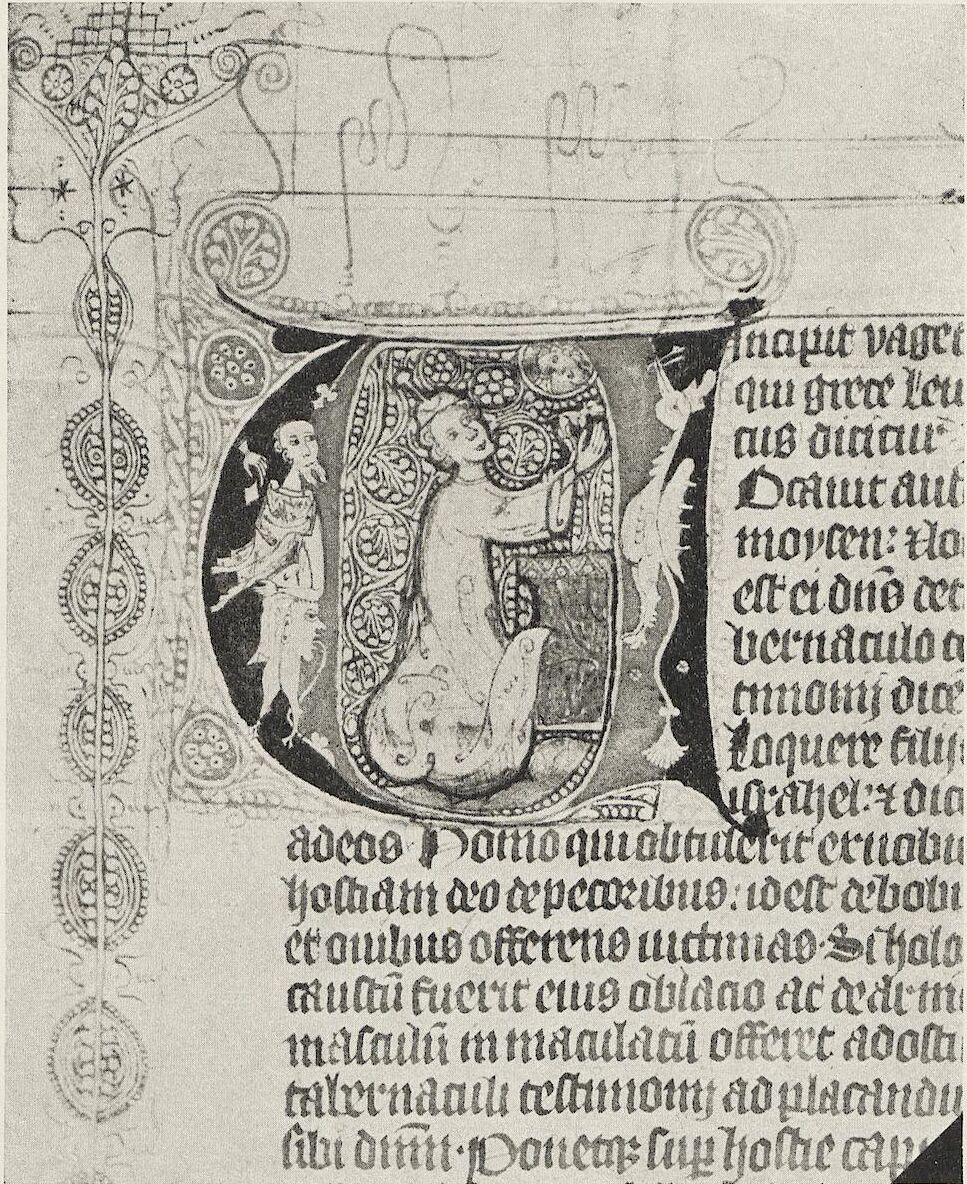 Incipit vaget
qui grece leui
cus dicitur
Vocauit aut
moysen: & lo
est ei dn̄s de t
bernaculo te
timonij dice
Loquere filijs
israhel: & dic
ad eos Homo qui obtulerit ex uobis
hostiam deo de pecoribus: id est de bobu
et ouibus offerens uictimas. Si holo
caustū fuerit eius oblacio ac de arm
masculū immaculatū offeret ad osti
tabernaculi testimonij ad placandu
sibi dnm̄. Ponetqꝫ suꝑ hostie cap